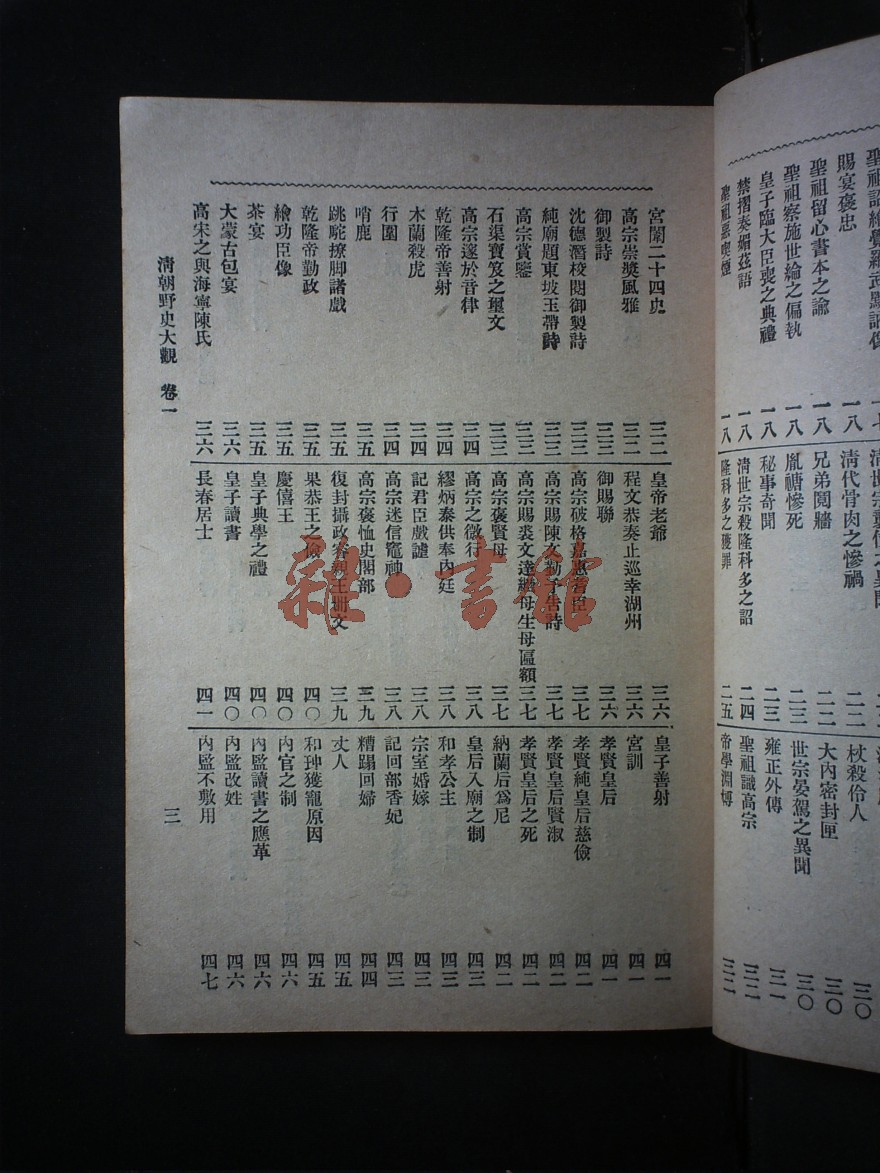 賜宴褒忠 一八
聖祖留心書本之諭 一八
聖祖察施世綸之偏執 一八
皇子臨大臣喪之典禮 一八
禁摺奏媚茲語 一八
聖祖惡喫煙 一八
清代骨肉之慘禍 二二
兄弟鬩牆 二二
胤禟慘死 二三
秘事奇聞 二三
清世宗殺隆科多之詔 二四
隆科多之獲罪 二五
杖殺伶人 三〇
大內密封匣 三〇
世宗晏駕之異聞 三〇
雍正外傳 三一
聖祖識高宗 三二
帝學淵博 三二
宮闈二十四史 三二
高宗崇獎風雅 三二
御製詩 三三
沈德潛校閱御製詩 三三
純廟題東坡玉帶詩 三三
高宗賞鑒 三三
石渠寶笈之璽文 三三
高宗邃於音律 三四
乾隆帝善射 三四
木蘭殺虎 三四
行圍 三四
哨鹿 三五
跳駝撩脚諸戲 三五
乾隆帝勤政 三五
繪功臣像 三五
茶宴 三五
大蒙古包宴 三六
高宋之與海寧陳氏 三六
皇帝老爺 三六
程文恭奏止巡幸湖州 三六
御賜聯 三六
高宗破格嘉惠耆臣 三七
高宗賜陳文勤予告詩 三七
高宗賜裘文達繼母生母匾額 三七
高宗褒賢母 三七
高宗之微行 三八
繆炳泰供奉內廷 三八
記君臣戲謔 三八
高宗迷信竈神 三八
高宗褒恤史閣部 三九
復封攝政睿親王冊文 三九
果恭王之儉 四〇
慶僖王 四〇
皇子典學之禮 四〇
皇子讀書 四〇
長春居士 四一
皇子善射 四一
宮訓 四一
孝賢皇后 四一
孝賢純皇后慈儉 四二
孝賢皇后賢淑 四二
孝賢皇后之死 四二
納蘭后爲尼 四二
皇后入廟之制 四三
和孝公主 四三
宗室婚嫁 四三
記回部香妃 四三
糟蹋回婦 四四
丈人 四五
和珅獲寵原因 四五
內官之制 四六
內監讀書之應革 四六
內監改姓 四六
內監不敷用 四七
清朝野史大觀 卷一 三
雜·書館